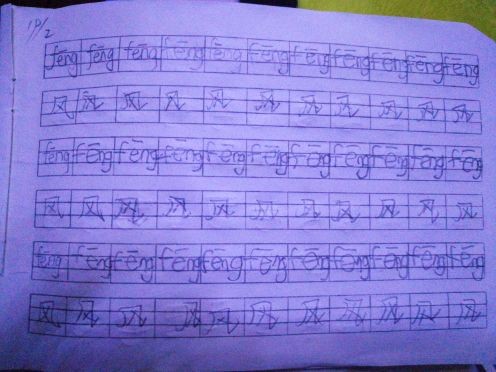 10/2
fēng fēng fēng fēng fēng fēng fēng fēng fēng fēng fēng
风 风 风 风 风 风 风 风 风 风 风
fēng fēng fēng fēng fēng fēng fēng fēng fēng fēng fēng
风 风 风 风 风 风 风 风 风 风 风
fēng fēng fēng fēng fēng fēng fēng fēng fēng fēng fēng
风 风 风 风 风 风 风 风 风 风 风